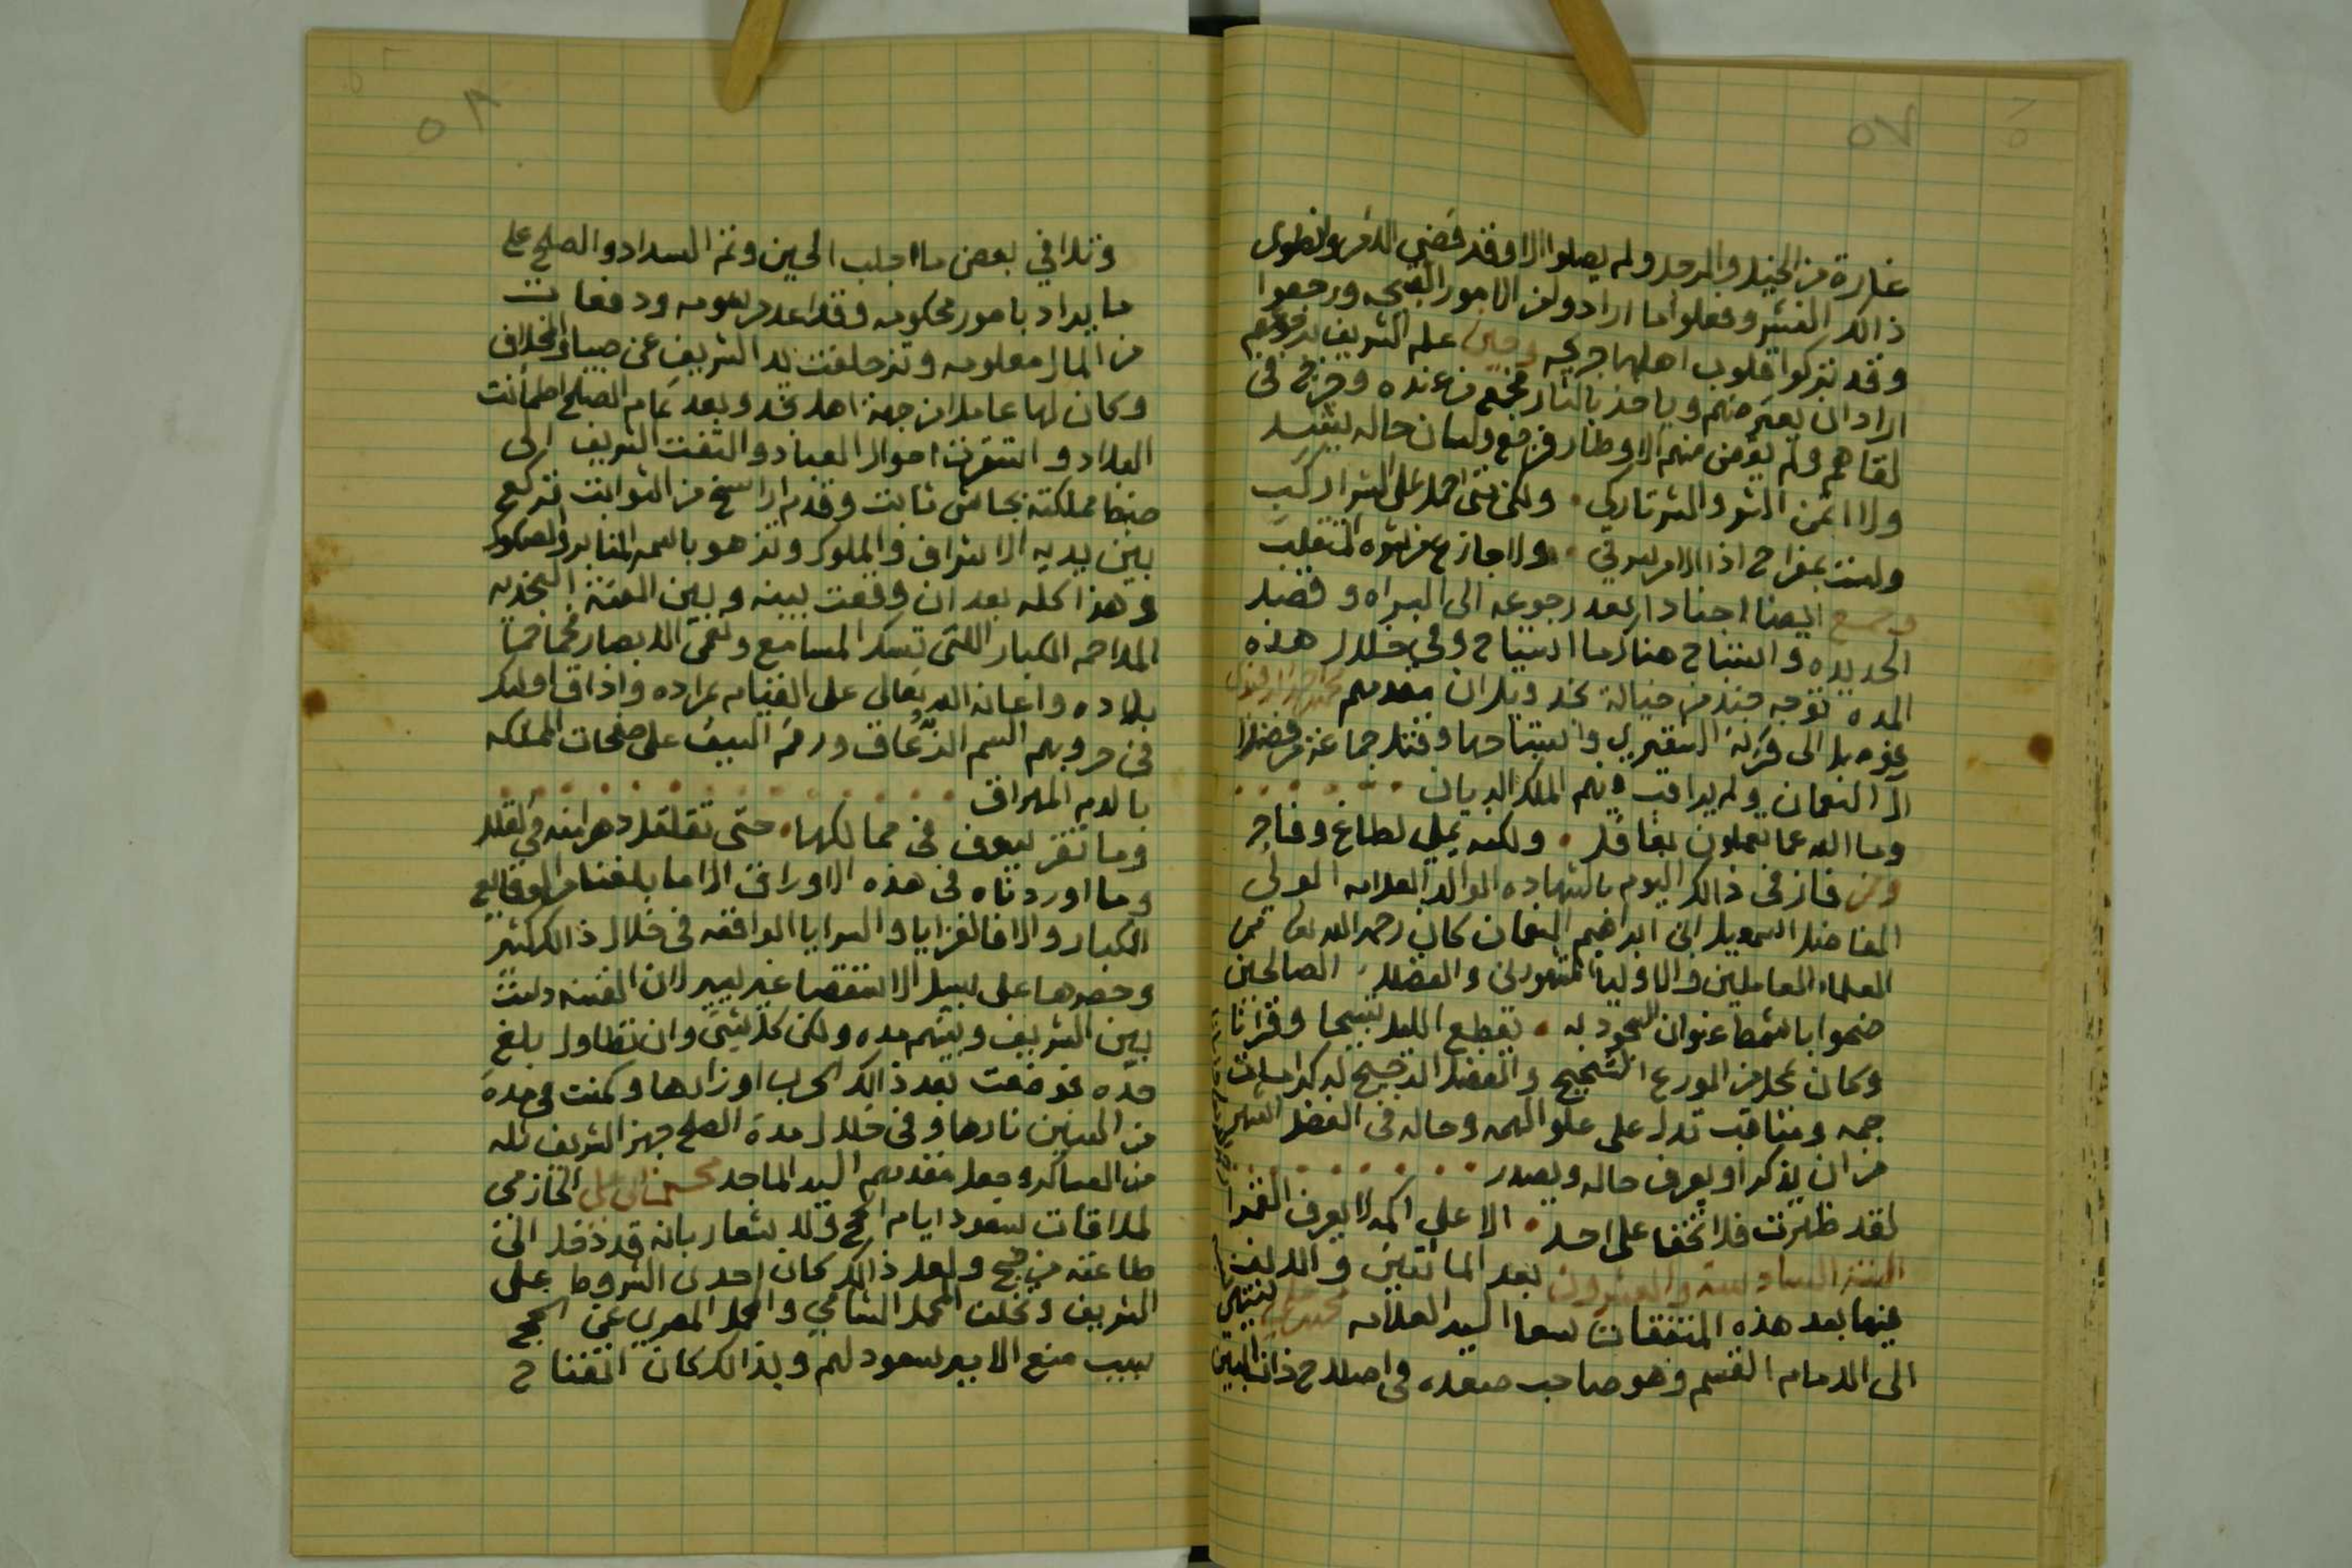 ٥٧
غارة من الجند والمرحد ولم يصلوا الا وقد قضي الامر وانطوى
ذالك النشر وفعلوا ما ارادو من الامور القبيحه ورجعوا
وقد تركوا قلوب اهلها جريحه وحين علم الشريف برجوعهم
اراد ان يعترضهم وياخذ بالثار فجمع من عنده وخرج في
لقاهم ولم يقض منهم الاوطار فرجع ولسان حاله ينشد
ولا اتمنى الشر والشر تاركي • ولكن متى احمل على الشر اركب
ولست بمفراح اذا الامر سرني • ولا جازع من صرفه المتقلب
وجمع ايضا اجنادا بعد رجوعه الى البراه وقصد
الحديده واستباح هناك ما استباح وفي خلال هذه
المده توجه جند من خيالة نجد وبلدان مقدمهم
عزم بل الى قرية الشقيري واستباحها وقتل جماعة من فضلا
آل النعمان ولم يراقب فيهم الملك الديان
وما الله عما يعملون بغافل • ولكنه يملي لطاغ وفاجر
وممن فاز في ذالك اليوم بالشهاده الوالد العلامه الولي
الفاضل اسمعيل ابن ابراهيم النعمان كان رحمه الله تعالى من
العلماء العاملين والاوليا المشهورين والفضلاء الصالحين
ضحوا باشمط عنوان السجود به • يقطع الليل تسبيحا وقرانا
وكان بمحل من الورع الشحيح والفضل الرجيح له كرامات
جمه ومناقب تدل على علو الهمه وحاله في الفضل اشهر
من ان يذكر او يعرف حاله ويصدر
لقد ظهرت فلا تخفا على احد • الا على اكمه لا يعرف القمرا
السنة السادسة والعشرون بعد المائتين والالف
فيها بعد هذه المتفقات سعا السيد العلامه
الى الامام القسم وهو صاحب صعده في اصلاح ذات البين
٥٨
وتلافي بعض ما اجلب الحين وتم السداد والصلح على
ما يراد بامور محكومه وقواعد مرسومه ودفعات
من المال معلومه وتزحلفت يد الشريف عن صبيا والمخلاف
وكان لها عاملا من جهة اهل نجد وبعد تمام الصلح اطمأنت
البلاد واستقرت احوال العباد والتفت الشريف الى
ضبط مملكته بجاش ثابت وقدم ارسخ من الثوابت تركع
بين يديه الاشراف والملوك وتزهو باسمه المنابر والصكوك
وهذا كله بعد ان وقعت بينه وبين الفئة النجديه
الملاحم الكبار اللتي تسك المسامع وتعمي الابصار فحما حميا
بلاده واعانه الله تعالى على القيام بمراده واذاق اولئك
في حروبهم السم الزُّعاف ورقم السيف على صفحات المملكه
بالدم المهراق
وما تقر سيوف في ممالكها • حتى تقلقل دهرا منه في القلل
وما اوردناه في هذه الاوراق الا ما بلغنا من الوقايع
الكبار والا فالغزايا والسرايا الواقفه في خلال ذالك كثير
وحصرها على سبيل الاستقصا غير يسير لان الفتنه دامت
بين الشريف وبينهم مده ولكن كل شيئ وان تطاول بلغ
حده فوضعت بعد ذالك الحرب اوزارها وكمنت في مدة
من السنين نارها وفي خلال مدة الصلح جهز الشريف ثله
من العساكر وجعل مقدمهم السيد الماجد محسن ابن علي الحازمي
لملاقات سعود ايام الحج للاشعار بانه قد دخل الى
طاعته من فج ولعل ذالك كان احدى الشروط على
الشريف وتخلف المحمل الشامي والمحمل المصري عن الحج
بسبب منع الامير سعود لهم وبذالك كان افتتاح